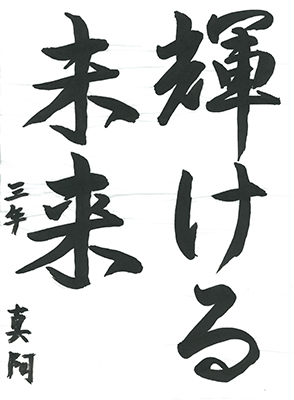 輝ける
未来
三年 真阿